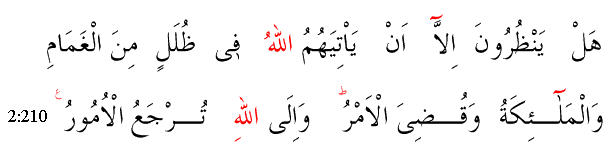 هَلْ يَنْظُرُونَ اِلَّاۤ اَنْ يَاْتِيَهُمُ اللهُ فِىْ ظُلَلٍ مِنَ الْغَمَامِ
وَالْمَلٰٓـئِكَةُ وَقُـضِىَ الْاَمْـرُ ؕ وَاِلَى اللهِ تُـرْجَعُ الْاُمُوْرُ ۧ 2:210